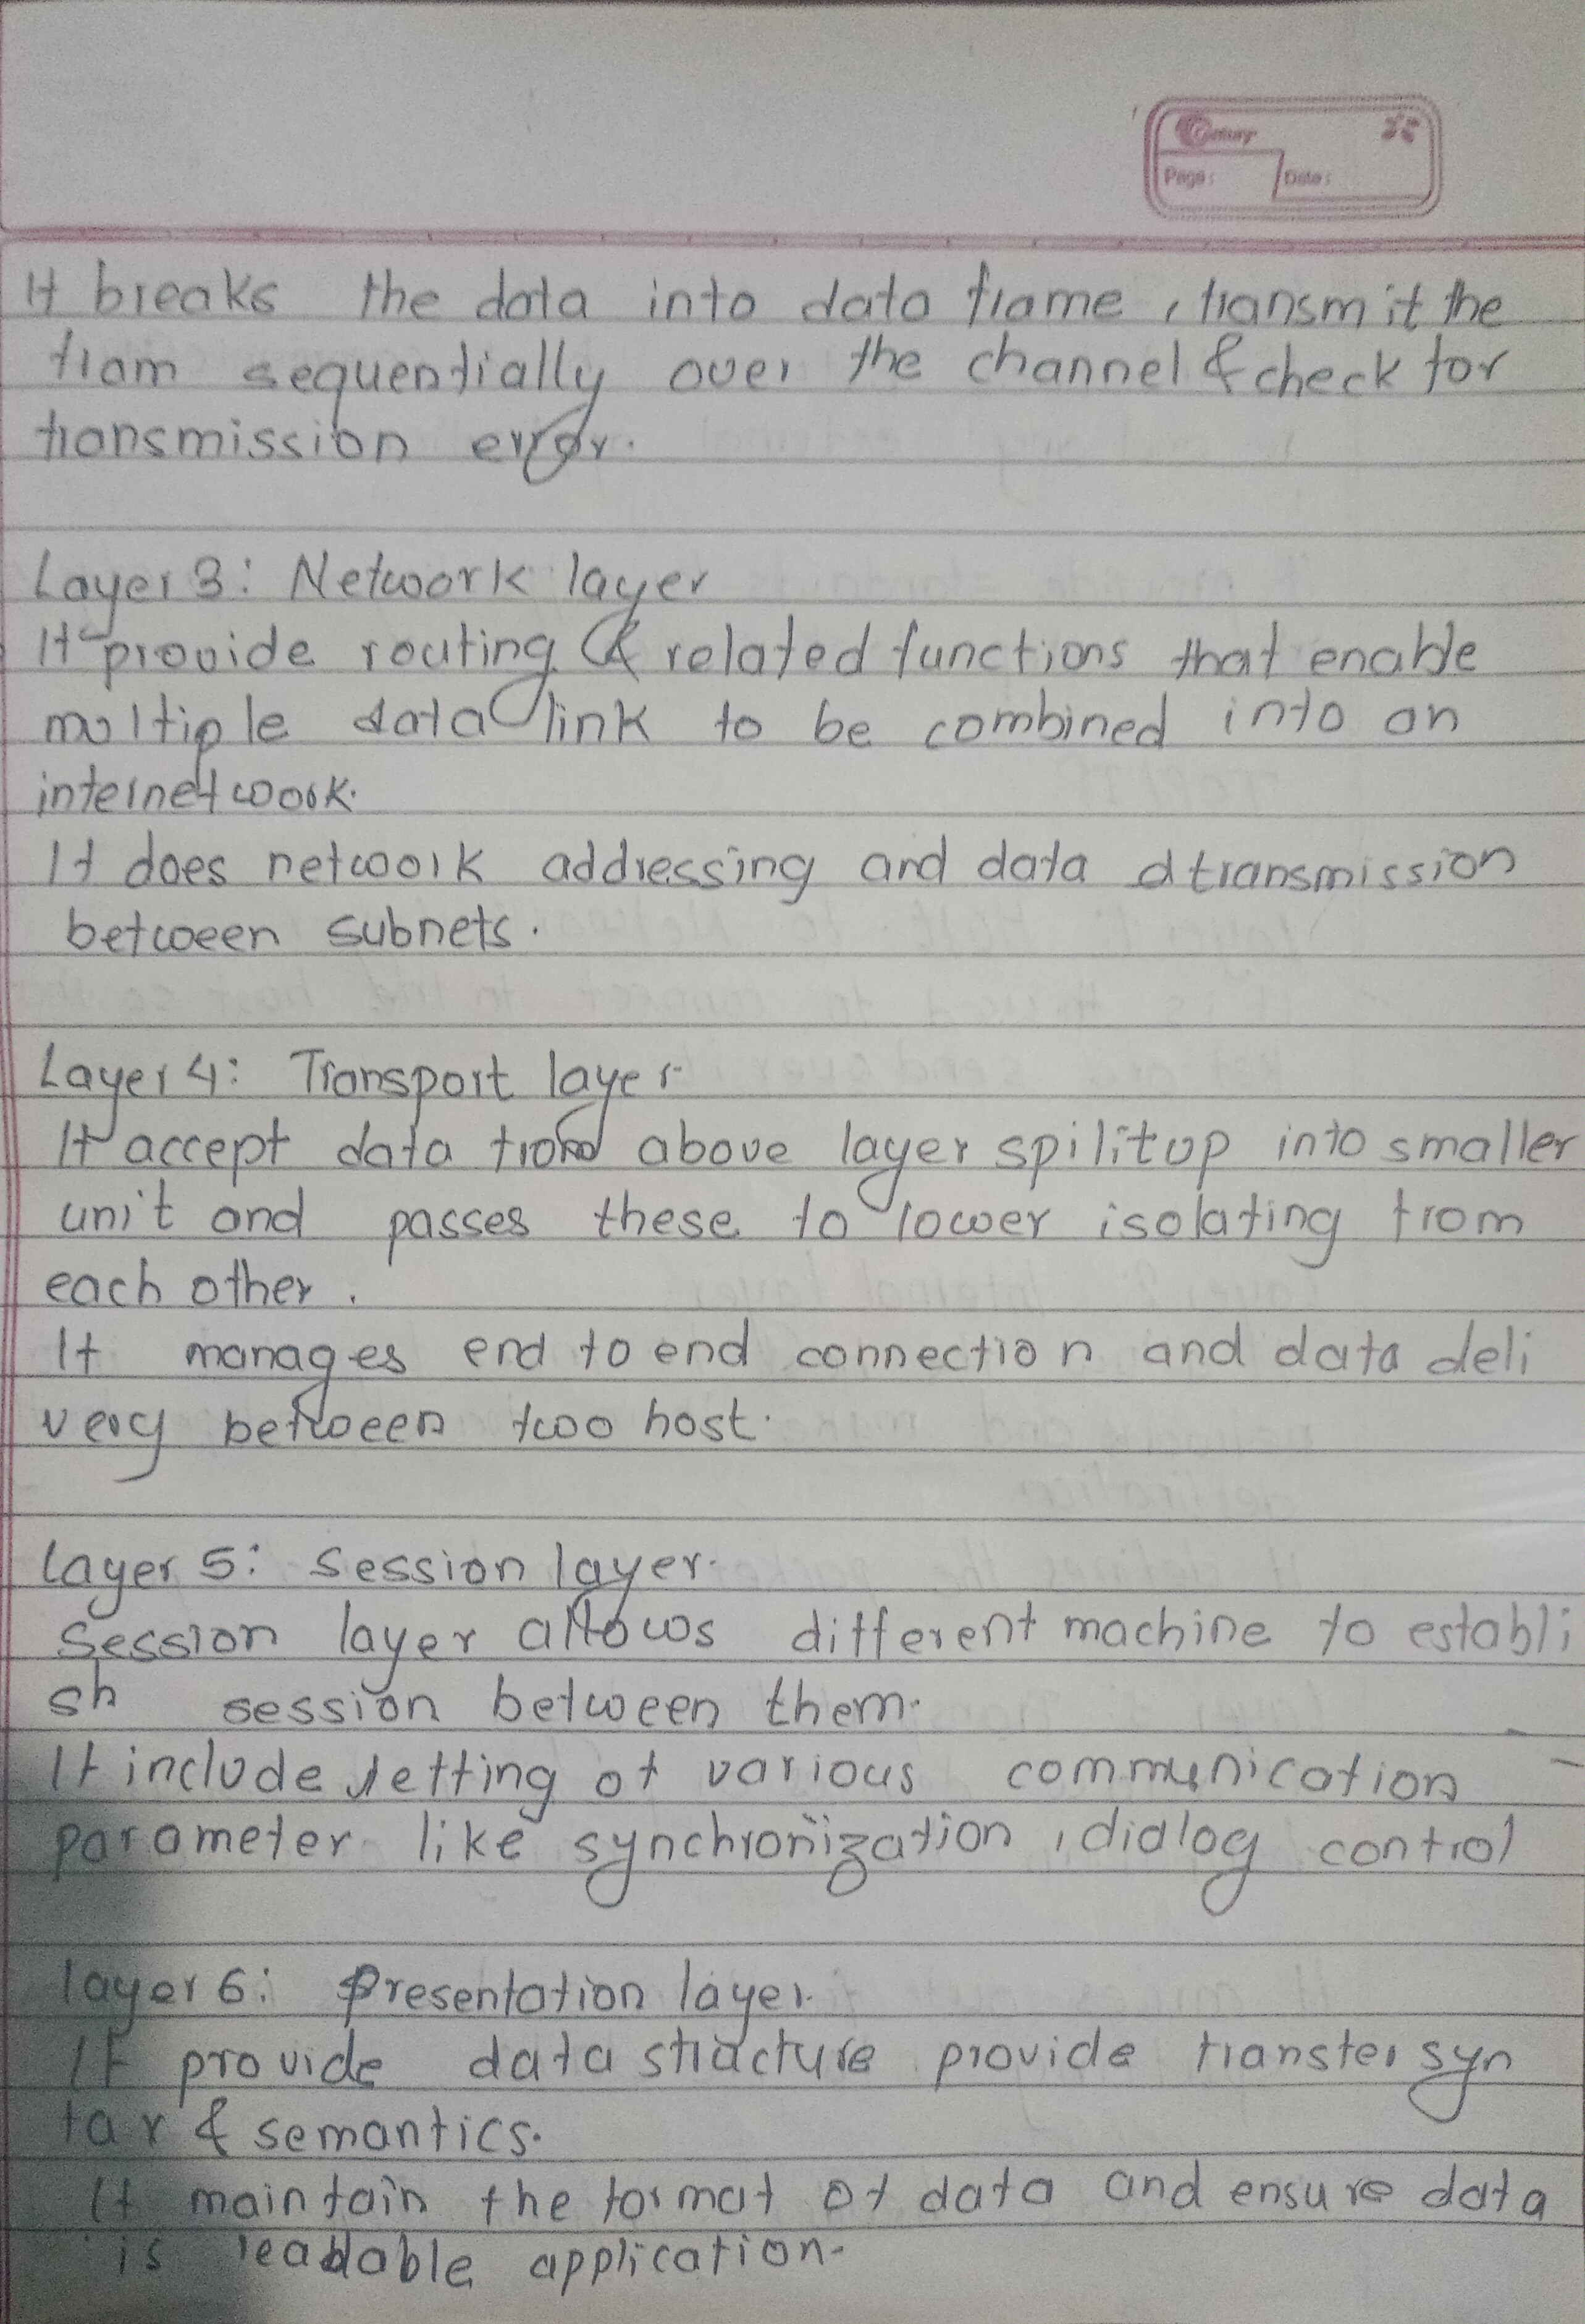 Century
Page: Date:
It breaks the data into data frame, transmit the
fram sequentially over the channel & check for
transmission error.
Layer 3: Network layer
It provide routing & related functions that enable
multiple data link to be combined into an
internetwork.
It does network addressing and data dtransmission
between subnets.
Layer 4: Transport layer
It accept data from above layer spilitup into smaller
unit and passes these to lower isolating from
each other.
It manages end to end connection and data deli
very between two host.
Layer 5: Session layer.
Session layer allows different machine to establi
sh session between them.
It include setting of various communication
parameter like synchronization, dialog control
layer 6: Presentation layer.
It provide data structure provide transfer syn
tax & semantics.
It maintain the format of data and ensure data
is readable application.